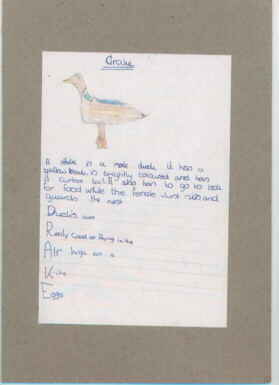 Drake
A drake is a male duck. it has a
yellow beak, is brightly coloured and has
a curled tail. It also has to go to look
for food while the female just sits and
guards the nest
Ducks are
Really Good at flying in the
Air high as a
Kite
Eggs